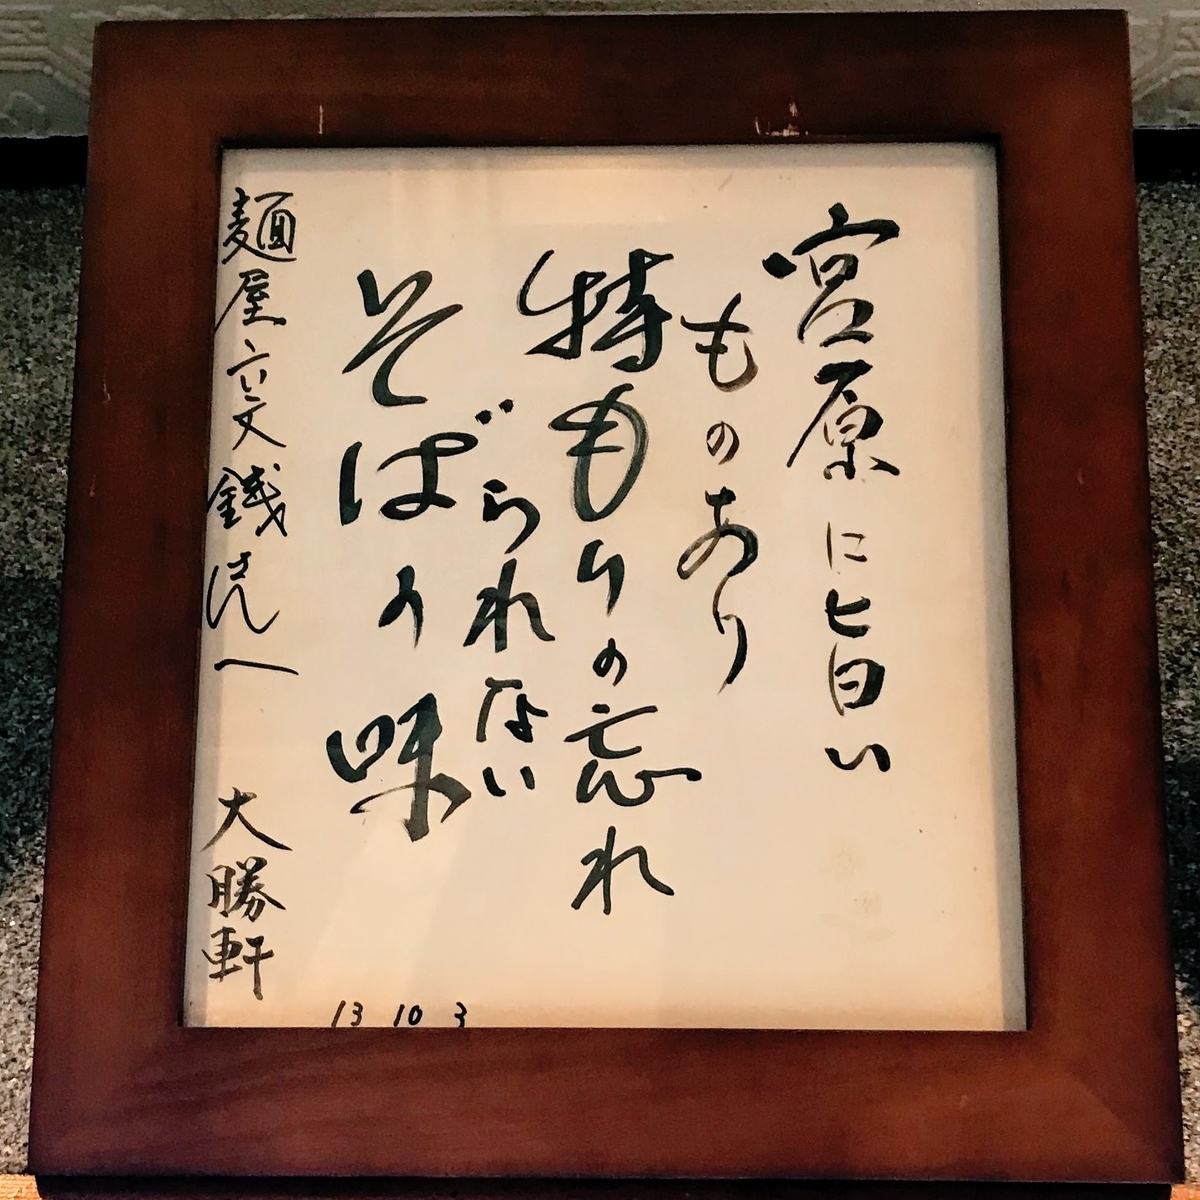 宮原に旨い
ものあり
特もりの忘れ
られない
そばの味
麺屋六文銭さんへ 大勝軒
13 10 3